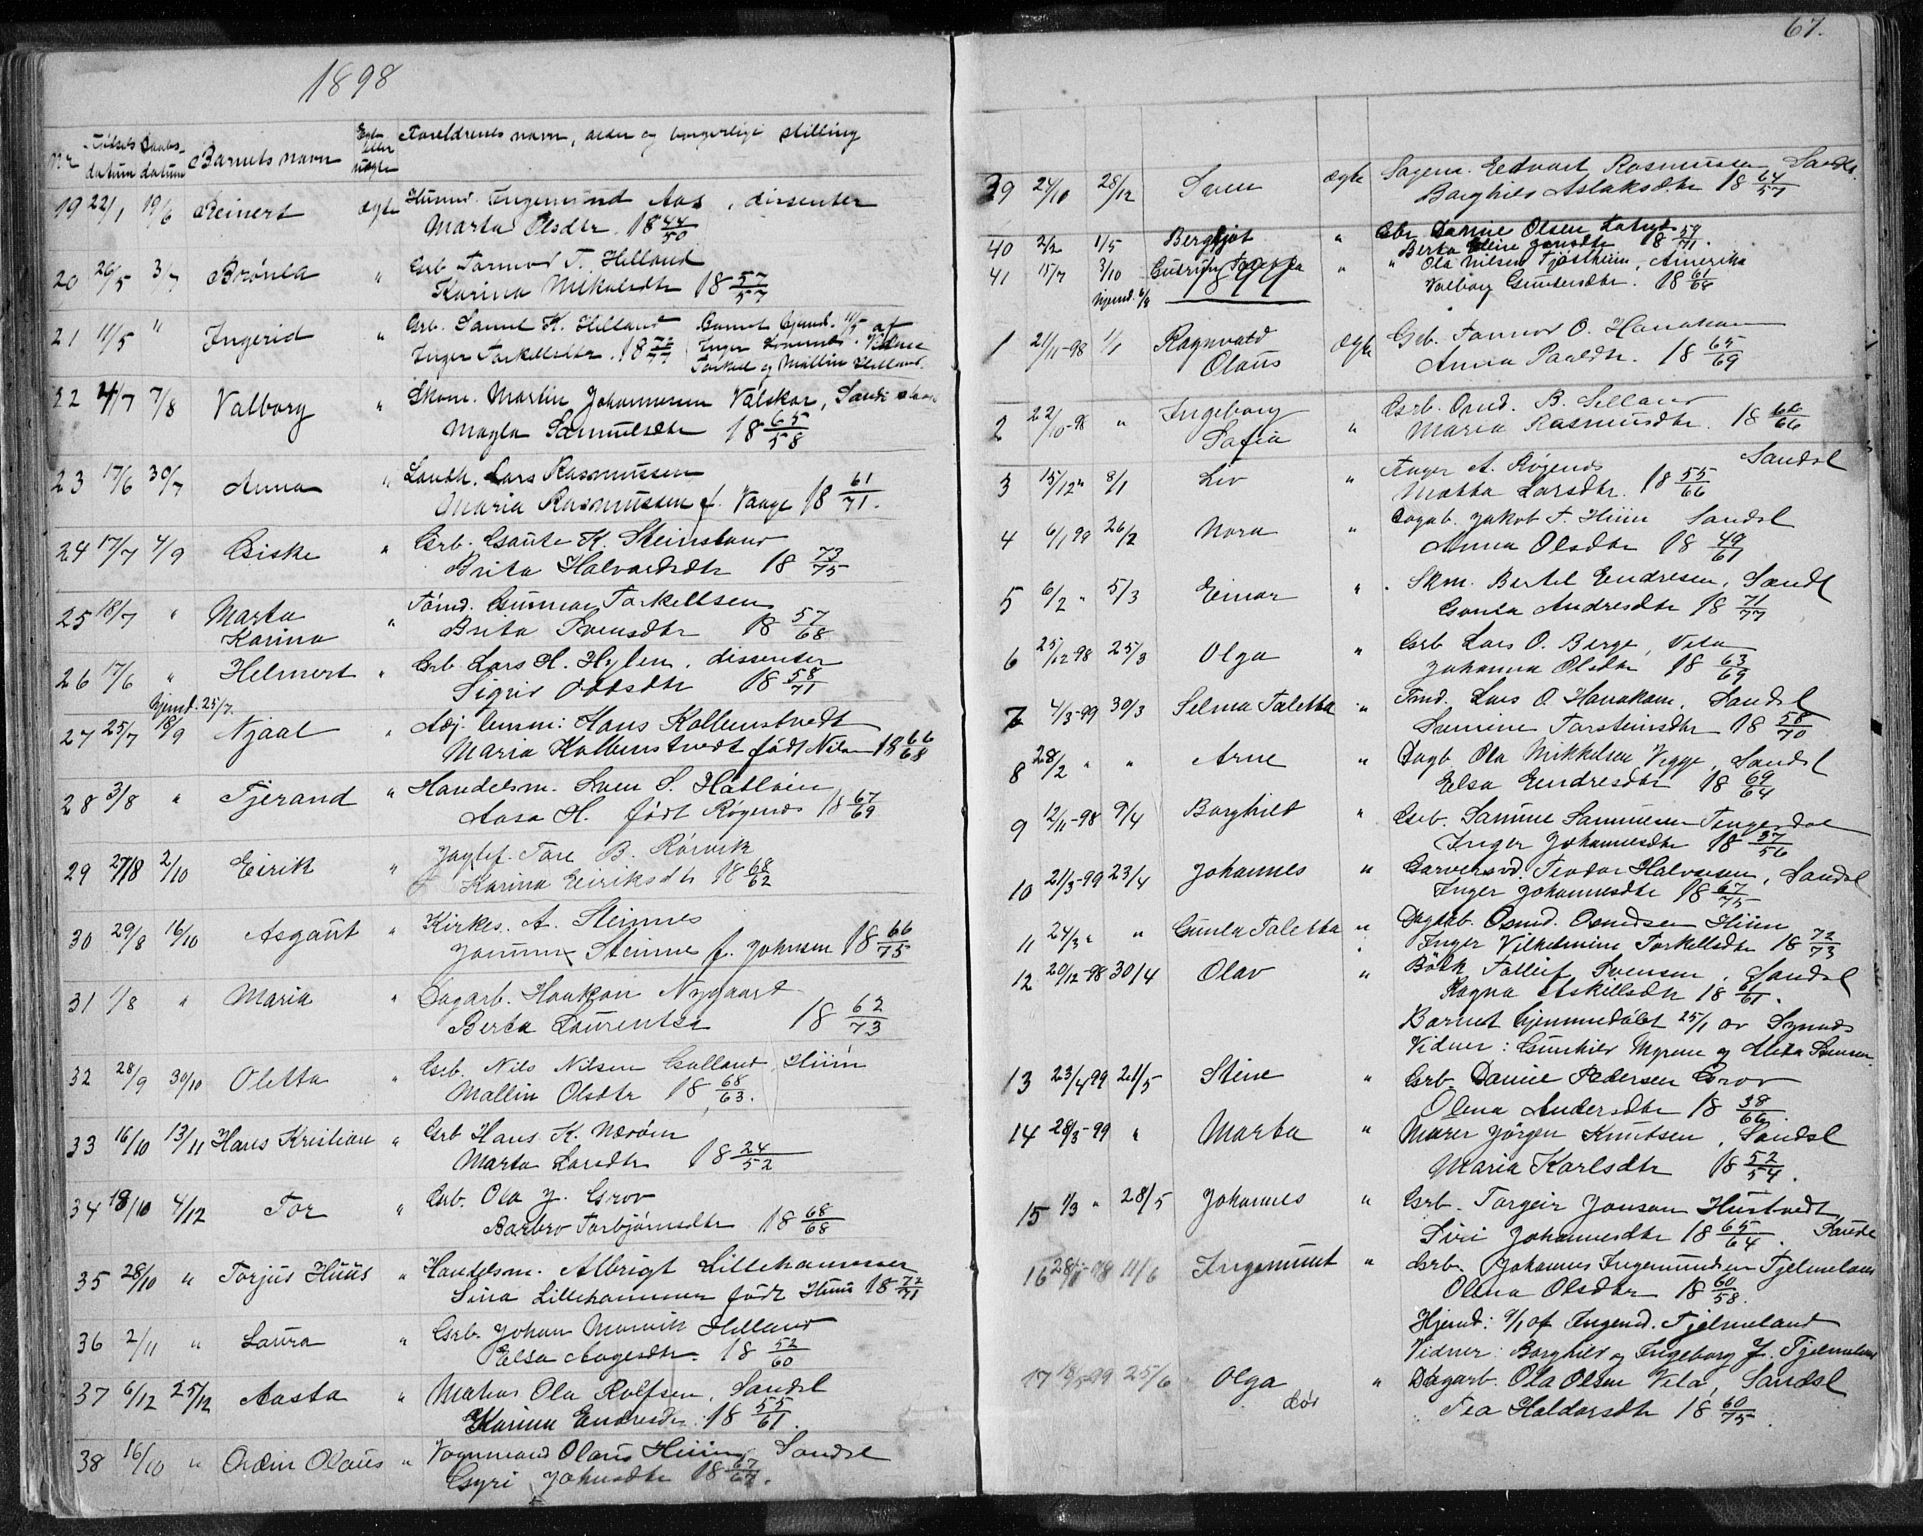 1898
Nr Fødsels datum Daabs datum Barnets navn Egte eller uægte Foreldrenes navn, alder og borgerlige stilling
19 22/1 19/6 Reinert ægte Huusm. Ingemund Aas, dissenter
Marta Olsdtr. 18 44/50
20 26/5 3/7 " Grb Tormod T. Helland
Karina Mikalsdtr 18 57/57
21 11/5 " Ingerid " Grb. Samel K. Helland Barnet hjemd. 11/5 af
Inger Torkellsdtr. 18 Inger Vidner
Torkel og Mallin Helland.
22 4/7 7/8 Valborg " Skom. Martin Johannesen Valskar, Sandsl
Magla Samuelsdtr 18 65/58
23 17/6 30/7 Anna " Landh. Lars Rasmussen
Maria Rasmussen f. Vaage 18 61/71.
24 17/7 4/9 Giske " Grb. Gaute K. Steinsland
Brita Halvardsdtr 18 73/75
25 18/7 " Marta " Tømd. Gunnar Torkellsen
Karina Brita Svensdtr 18 57/68
26 17/6 " Helmert " Grb Lars H. Hylen, dissenter
hjemd. 25/7. Sigrid Oddsdtr 18 58/71
27 25/7 18/9 Njaal " Adj. Hans Kollenstvedt
Maria Kollenstvedt født Nilsen 18 66/68
28 3/8 " Tjerand " Handelsm. Sven S. Hatløin
Aasa H. født Røgenes 18 67/69
29 27/8 2/10 Eirik " Jagtef. Tore B. Rørvik
Karina Eiriksdtr 18 68/62
30 29/8 16/10 Asgaut " Kirkes. A. Steinnes
Steinnes f. Johnsen 18 66/75
31 1/8 " Maria " Dagarb. Haakon Nygaard
Berta Laurentse 18 62/73
32 28/9 30/10 Oletta " Grb. Nils Nilsen Golland, Hiim
Mallin Olsdtr 18 68/63.
33 16/10 13/11 Hans Kristian " Grb Hans K. Nærøen
Marta Larsdtr 18 24/52
34 18/10 4/12 Tor " Grb. Ola J. Grov
Barbro Torbjørnsdtr 18 68/68
35 28/10 " Torjus Huus " Handelsm. Albrigt Lillehammer
Sina Lillehammer født Huus 18 72/71
36 2/11 " Laura " Grb. Johan Marvik Helland
Elsa Aagesdtr. 18 52/60
37 6/12 25/12 Aasta " Matros Ola Rolfsen, Sandsl
Karina Endresdtr. 18 55/61.
38 16/10 " Odin Olaus " Vognmand Olaus Hiim, Sandsl
Gyri Johnsdtr 18 67/67.
67.
39 24/10 28/12 Sven ægte Sagem. Edvart Rasmussen Sandsl.
Borghild Aslaksdtr 18 64/57
40 2/2 1/5 Bergljot " Grb. Daniel Olsen
Berta Eline Jonsdtr 18 59/71.
41 15/7 3/10 " " Ola Nilsen Tjøstheim, Amerika
hjemd. 6/8 Valborg Gundersdtr. 18 61/66
1899
1 21/11-98 1/1 Ragnvald ægte Grb. Tormod O. Hanakam
Olaus Anna Paalsdtr. 18 65/69
2 22/10-98 " Ingeborg " Grb. Osmd. B. Selland
Sofia Maria Rasmusdtr. 18 66/66
3 15/12 " 8/1 Liv " A. Røgenes Sandsl
Matha Larsdtr. 18 55/66
4 6/1 99 26/2 Nora " Dagab. Jakob T. Hiim Sandsl
Anna Olsdtr 18 49/61
5 6/2 " 5/3 Einar " Skm. Bertel Endresen, Sandsl
Gunla Andresdtr 18 71/77
6 25/12-98 25/3 Olga " Grb Lars O. Berge, Vela
Johanna Olsdtr 18 63/69
7 4/3-99 30/3 Selma Taletta " Tmd. Lars O. Hanakam, Sandsl
Samine Torsteinsdtr 18 58/70
8 28/2 " " Arne " Dagb Ola Mikkelsen Vegge, Sandsl
Elsa Endresdtr 18 69/64
9 12/11-98 9/4 Borghild " Grb. Samuel Samuelsen Tengesdal
Inger Johannesdtr 18 37/56
10 21/3-99 23/4 Johannes " Garversvd. Teodor Halvorsen, Sandsl
Inger Johannesdtr 18 67/75
11 24/3 " " Gunla Taletta " Dagarb. Osmd. Osmdsen Hiim
Inger Vilhelmine Torkellsdtr 18 72/73
12 20/12-98 30/4 Olav " Bødk Tolleif Svensen, Sandsl
Ragna Askellsdtr 18 61/61.
Barnet hjemmedøbt 25/1 av
Vidner: Gunhild Myrene og
13 23/4 99 21/5 Stine " Grb. Daniel Pedersen Grov
Olena Andersdtr 18 38/66.
14 28/3-99 " Marta " Murer Jørgen Knutsen, Sandsl
Maria Karlsdtr 18 52/54.
15 1/3 " 28/5 Johannes " Grb. Torgeir Jonsen Hustvedt
Siri Johannesdtr 18 65/64. Sandsl
16 98 11/6 Ingemunt " Grb. Johannes Ingemundsen Tjelmeland
Olena Olsdtr 18 60/58.
Hjemd: 9/1 af Ingemd. Tjelmeland
Vidner: Borghild og Ingeborg J. Tjelmeland
17 18/5-99 25/6 Olga " Dagarb. Ola Olsen Vela, Sandsl
død Tea Haldorsdtr 18 60/75.